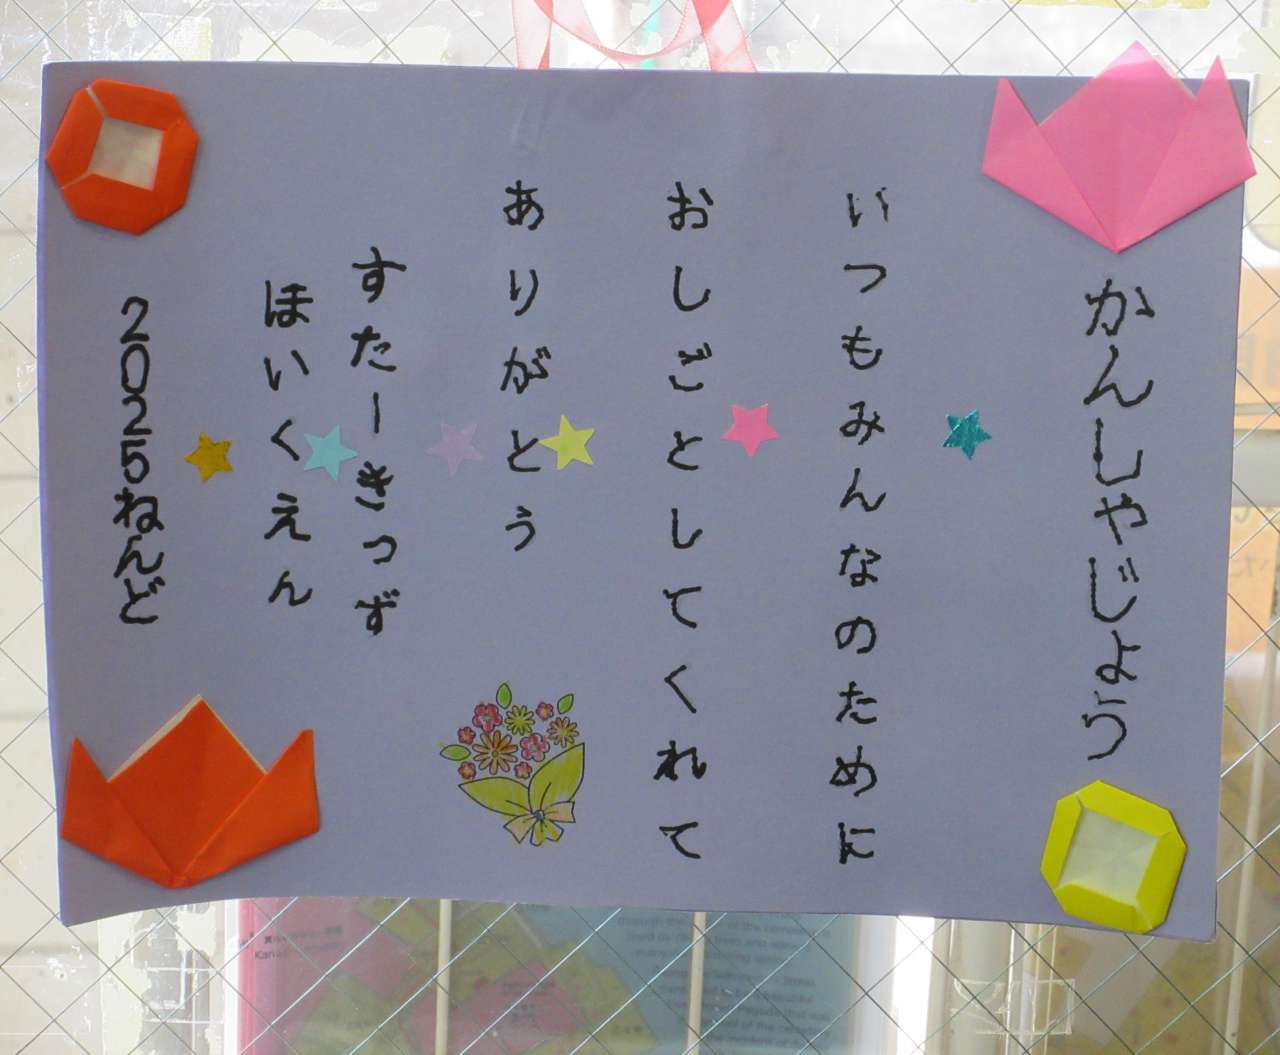 かんしゃじょう
いつもみんなのために
おしごとしてくれて
ありがとう
すたーきっず
ほいくえん
2025ねんど